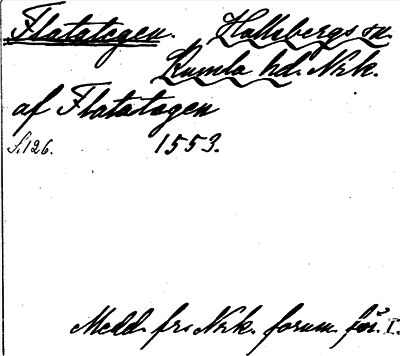 Flatatogen. Hallsbergs sn.
Kumla hd. Nrk.
af Flatatogen
S. 126. 1553.
Medd. fr. Nrk. fornm. för. I.